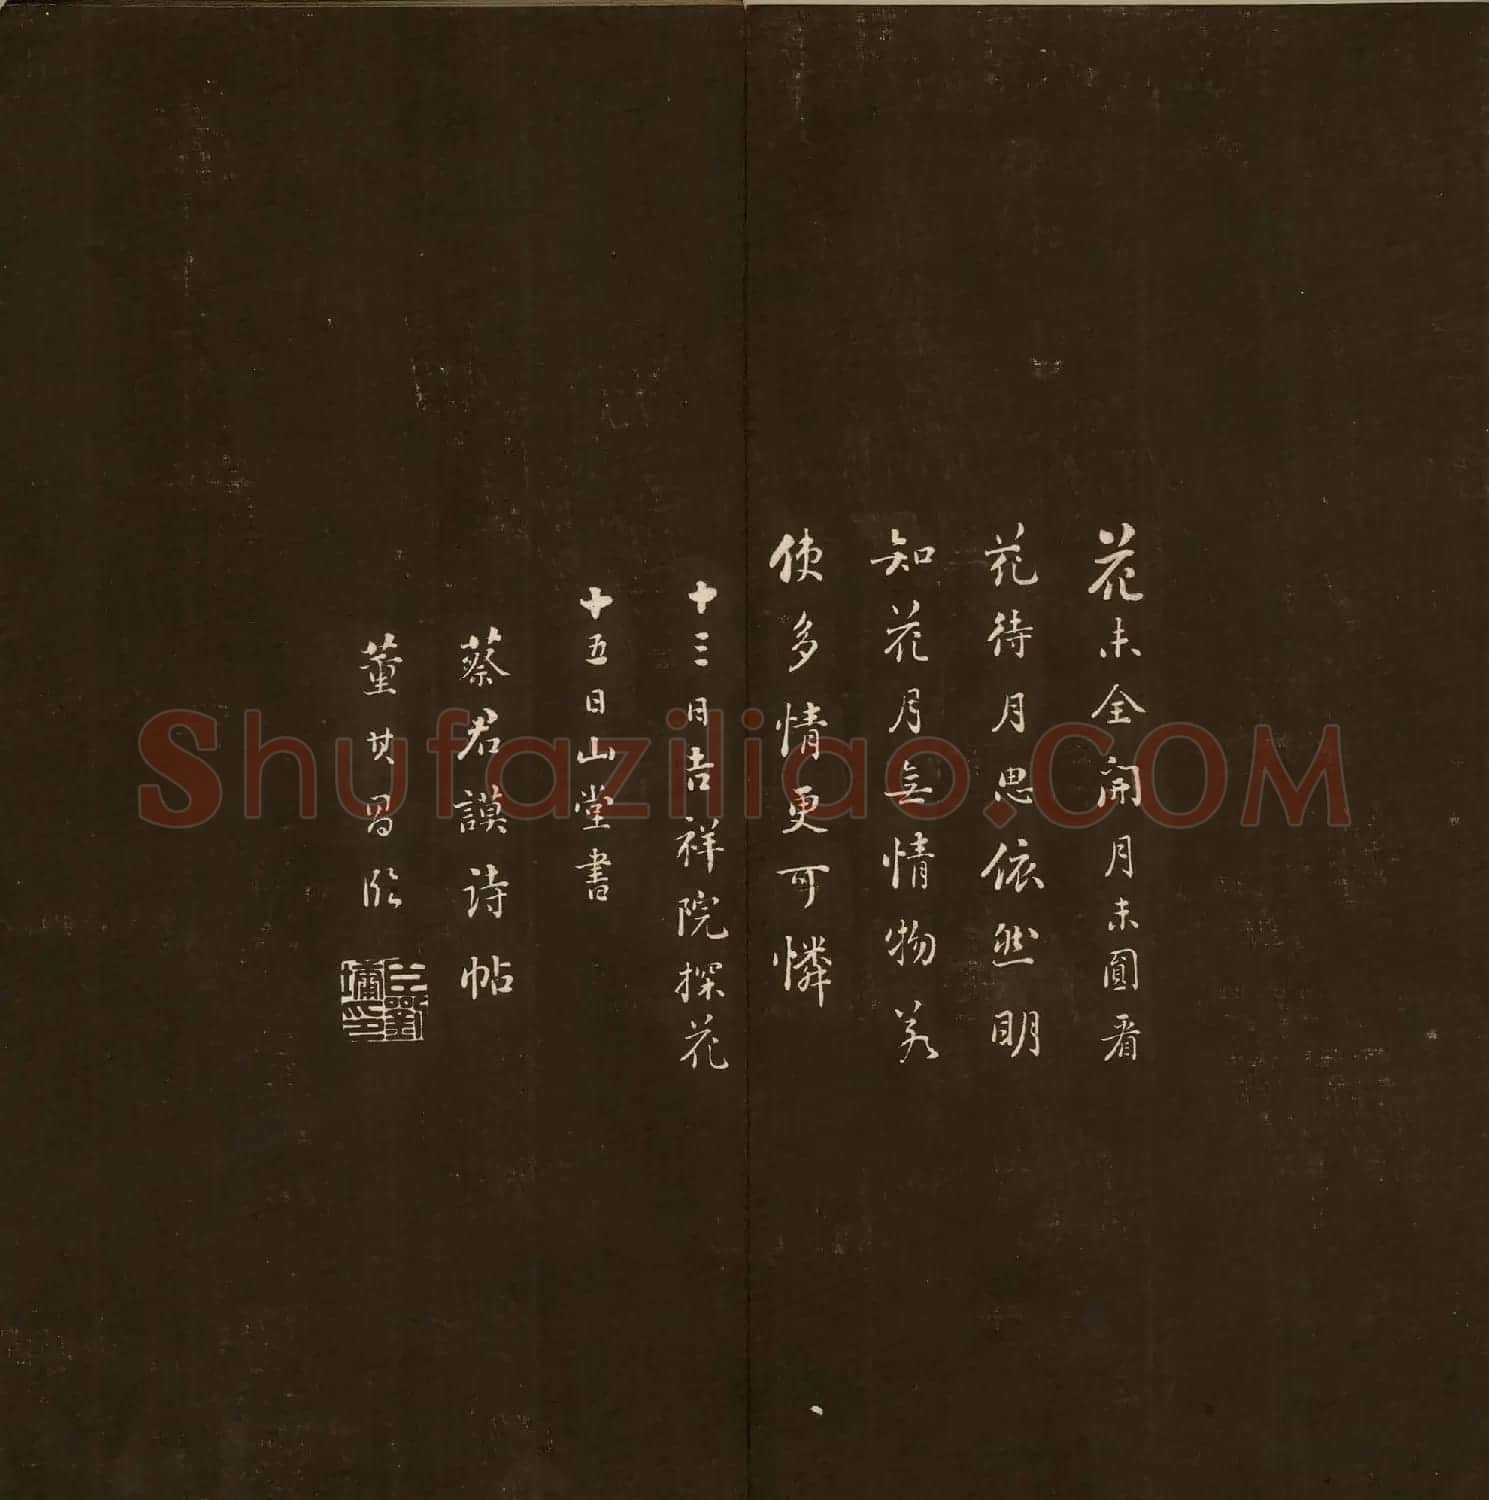 花未全開月未圓看
花待月思依然明
知花月無情物若
使多情更可憐
十三日吉祥院探花
十五日山堂書
蔡君謨詩帖
董其昌臨
Shufaziliao.COM